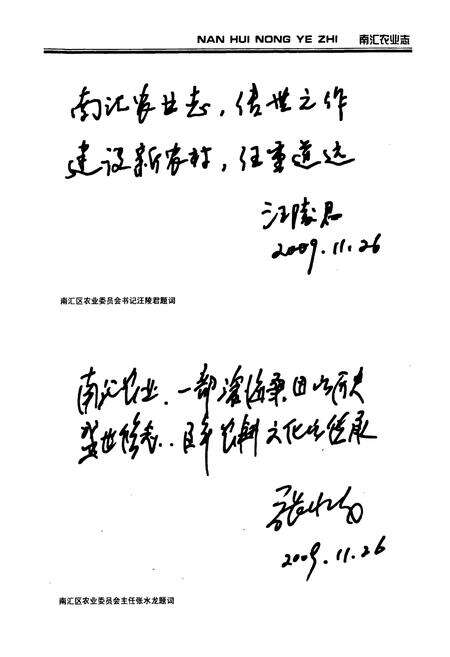 NAN HUI NONG YE ZHI 南汇农业志
南汇农业志，传世之作
建设新农村，任重道远
汪陵君
2009.11.26
南汇区农业委员会书记汪陵君题词
南汇农业、一部沧海桑田的历史
盛世修志..百年农耕文化的传承
张水龙
2009.11.26
南汇区农业委员会主任张水龙题词